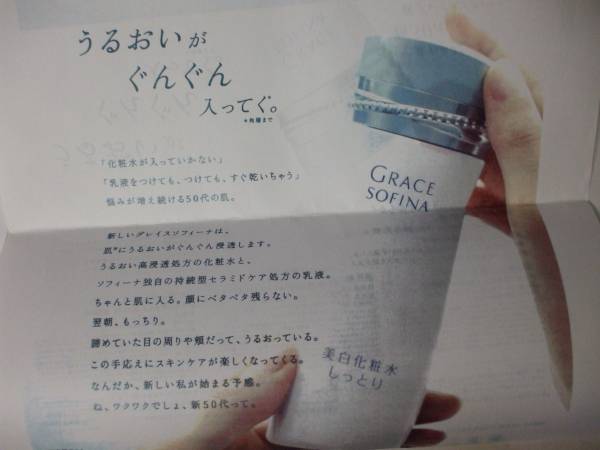 うるおいが
ぐんぐん
入ってぐ。
*角層まで
「化粧水が入っていかない」
「乳液をつけても、つけても、すぐ乾いちゃう」
悩みが増え続ける50代の肌。
新しいグレイスソフィーナは、
肌*にうるおいがぐんぐん浸透します。
うるおい高浸透処方の化粧水と、
ソフィーナ独自の持続型セラミドケア処方の乳液。
ちゃんと肌に入る。顔にベタベタ残らない。
翌朝、もっちり。
諦めていた目の周りや頬だって、うるおっている。
この手応えにスキンケアが楽しくなってくる。
なんだか、新しい私が始まる予感。
ね、ワクワクでしょ、新50代って。
GRACE
SOFINA
美白化粧水
しっとり